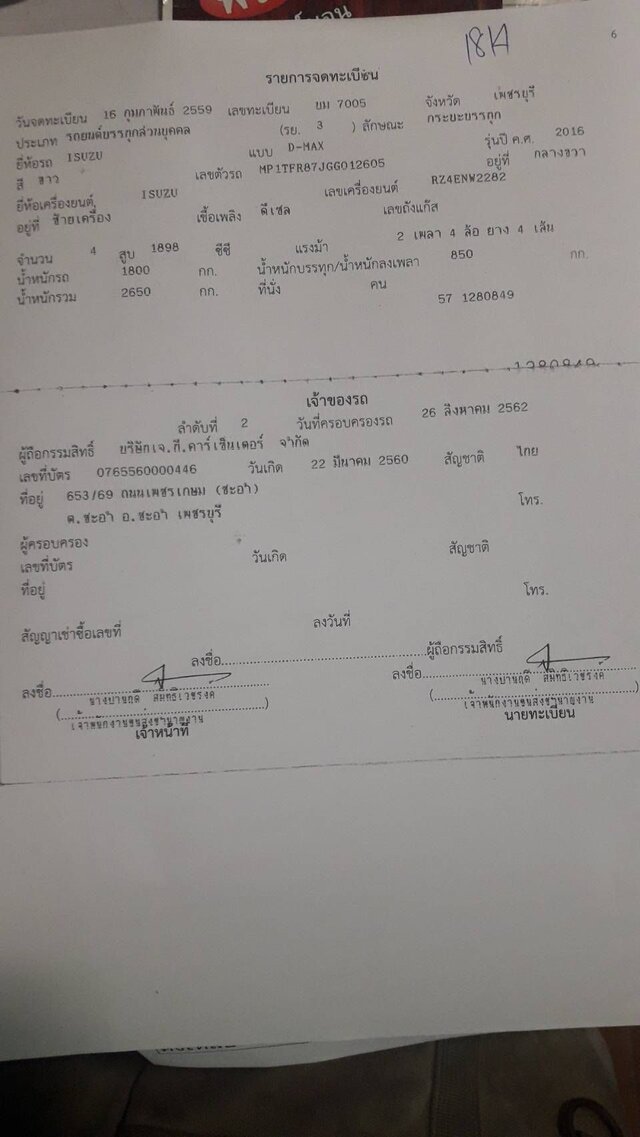 18/1
6
รายการจดทะเบียน
วันจดทะเบียน 16 กุมภาพันธ์ 2559 เลขทะเบียน บม 7005 จังหวัด เพชรบุรี
ประเภท รถยนต์บรรทุกส่วนบุคคล (รย. 3 ) ลักษณะ กระบะบรรทุก
ยี่ห้อรถ ISUZU แบบ D-MAX รุ่นปี ค.ศ. 2016
สี ขาว เลขตัวรถ MP1TFR87JGG012605 อยู่ที่ กลางขวา
ยี่ห้อเครื่องยนต์ ISUZU เลขเครื่องยนต์ RZ4ENW2282
อยู่ที่ ซ้ายเครื่อง เชื้อเพลิง ดีเซล เลขถังแก๊ส
จำนวน 4 สูบ 1898 ซีซี แรงม้า 2 เพลา 4 ล้อ ยาง 4 เส้น
น้ำหนักรถ 1800 กก. น้ำหนักบรรทุก/น้ำหนักลงเพลา 850 กก.
น้ำหนักรวม 2650 กก. ที่นั่ง คน
57 1280849
1280849
เจ้าของรถ
ลำดับที่ 2 วันที่ครอบครองรถ 26 สิงหาคม 2562
ผู้ถือกรรมสิทธิ์ บริษัทเจ.ที.คาร์เซ็นเตอร์ จำกัด
เลขที่บัตร 0765560000446 วันเกิด 22 มีนาคม 2560 สัญชาติ ไทย
ที่อยู่ 653/69 ถนนเพชรเกษม (ชะอำ) โทร.
ต.ชะอำ อ.ชะอำ เพชรบุรี
ผู้ครอบครอง
เลขที่บัตร วันเกิด สัญชาติ
ที่อยู่ โทร.
สัญญาเช่าซื้อเลขที่ ลงวันที่
ลงชื่อ ผู้ถือกรรมสิทธิ์
ลงชื่อ ลงชื่อ
เจ้าพนักงานขนส่งชำนาญงาน เจ้าพนักงานขนส่งชำนาญงาน
เจ้าหน้าที่ นายทะเบียน